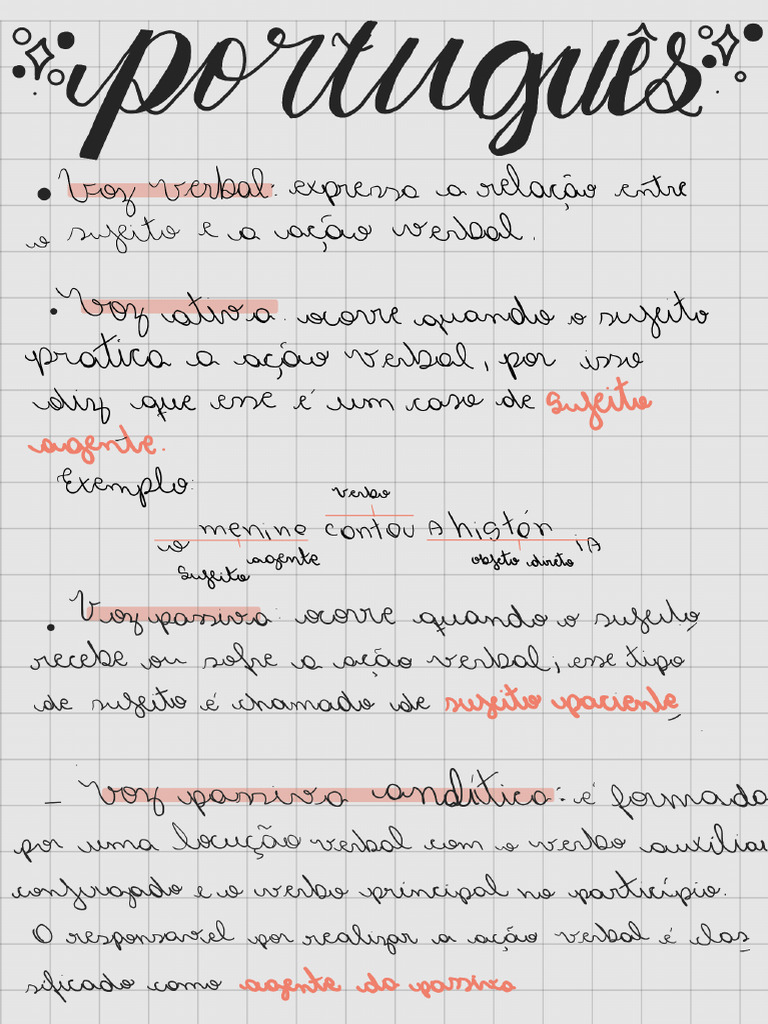 português
• Voz verbal: expressa a relação entre
o sujeito e a ação verbal.
• Voz ativa: ocorre quando o sujeito
pratica a ação verbal, por isso
diz que esse é um caso de sujeito
agente.
Exemplo:
verbo
o menino contou A históriA
sujeito agente objeto direto
• Voz passiva: ocorre quando o sujeito
recebe ou sofre a ação verbal; esse tipo
de sujeito é chamado de sujeito paciente
- Voz passiva analítica: é formada
por uma locução verbal com o verbo auxiliar
conjugado e o verbo principal no particípio.
O responsavel por realizar a ação verbal é clas
sificado como agente da passiva